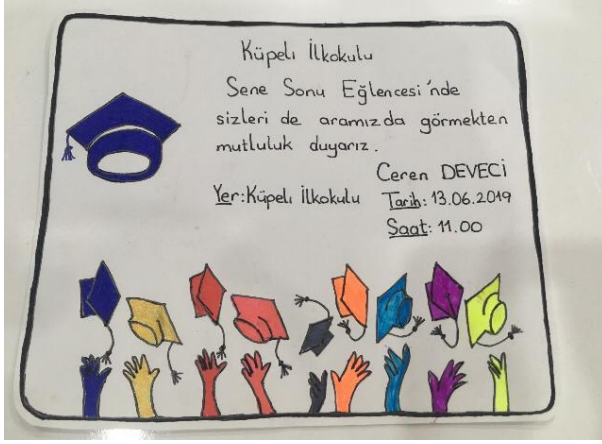 Küpeli İlkokulu
Sene Sonu Eğlencesi'nde
sizleri de aramızda görmekten
mutluluk duyarız.
Ceren DEVECİ
Yer: Küpeli İlkokulu Tarih: 13.06.2019
Saat: 11.00